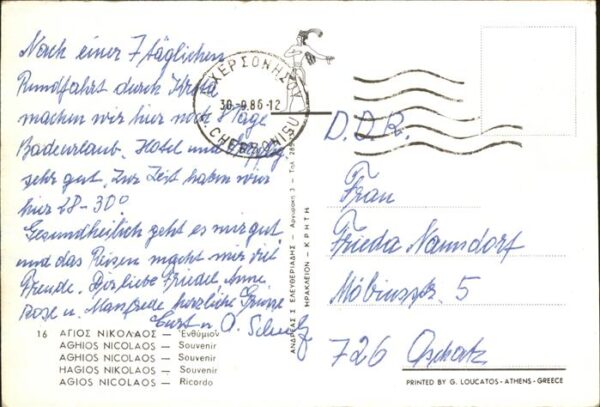 Nach einer 7 täglichen
Rundfahrt durch Kreta
machen wir hier noch 8 Tage
Badeurlaub. Hotel und
sehr gut. Zur Zeit haben wir
hier 28-30°
Gesundheitlich geht es mir gut
und das Reisen macht mir viel
Freude. Dir liebe Friedel, Anne
Rose u. Manfrede herzliche Grüße
Curt u. O. Scholz
Λ. ΧΕΡΣΟΝΗΣΟΥ
30-9.86-12
L. CHERSONISU
D.D.R.
Frau
Frieda Naundorf
Möbiusstr. 5
726 Oschatz
ΑΝΔΡΕΑΣ Σ ΕΛΕΥΘΕΡΙΑΔΗΣ - Αρχιμήδη 3 - Τηλ
ΗΡΑΚΛΕΙΟΝ - ΚΡΗΤΗ
16 ΑΓΙΟΣ ΝΙΚΟΛΑΟΣ — Ενθύμιον
AGHIOS NICOLAOS — Souvenir
AGHIOS NICOLAOS — Souvenir
HAGIOS NIKOLAOS — Souvenir
AGIOS NICOLAOS — Ricordo
PRINTED BY G. LOUCATOS - ATHENS - GREECE